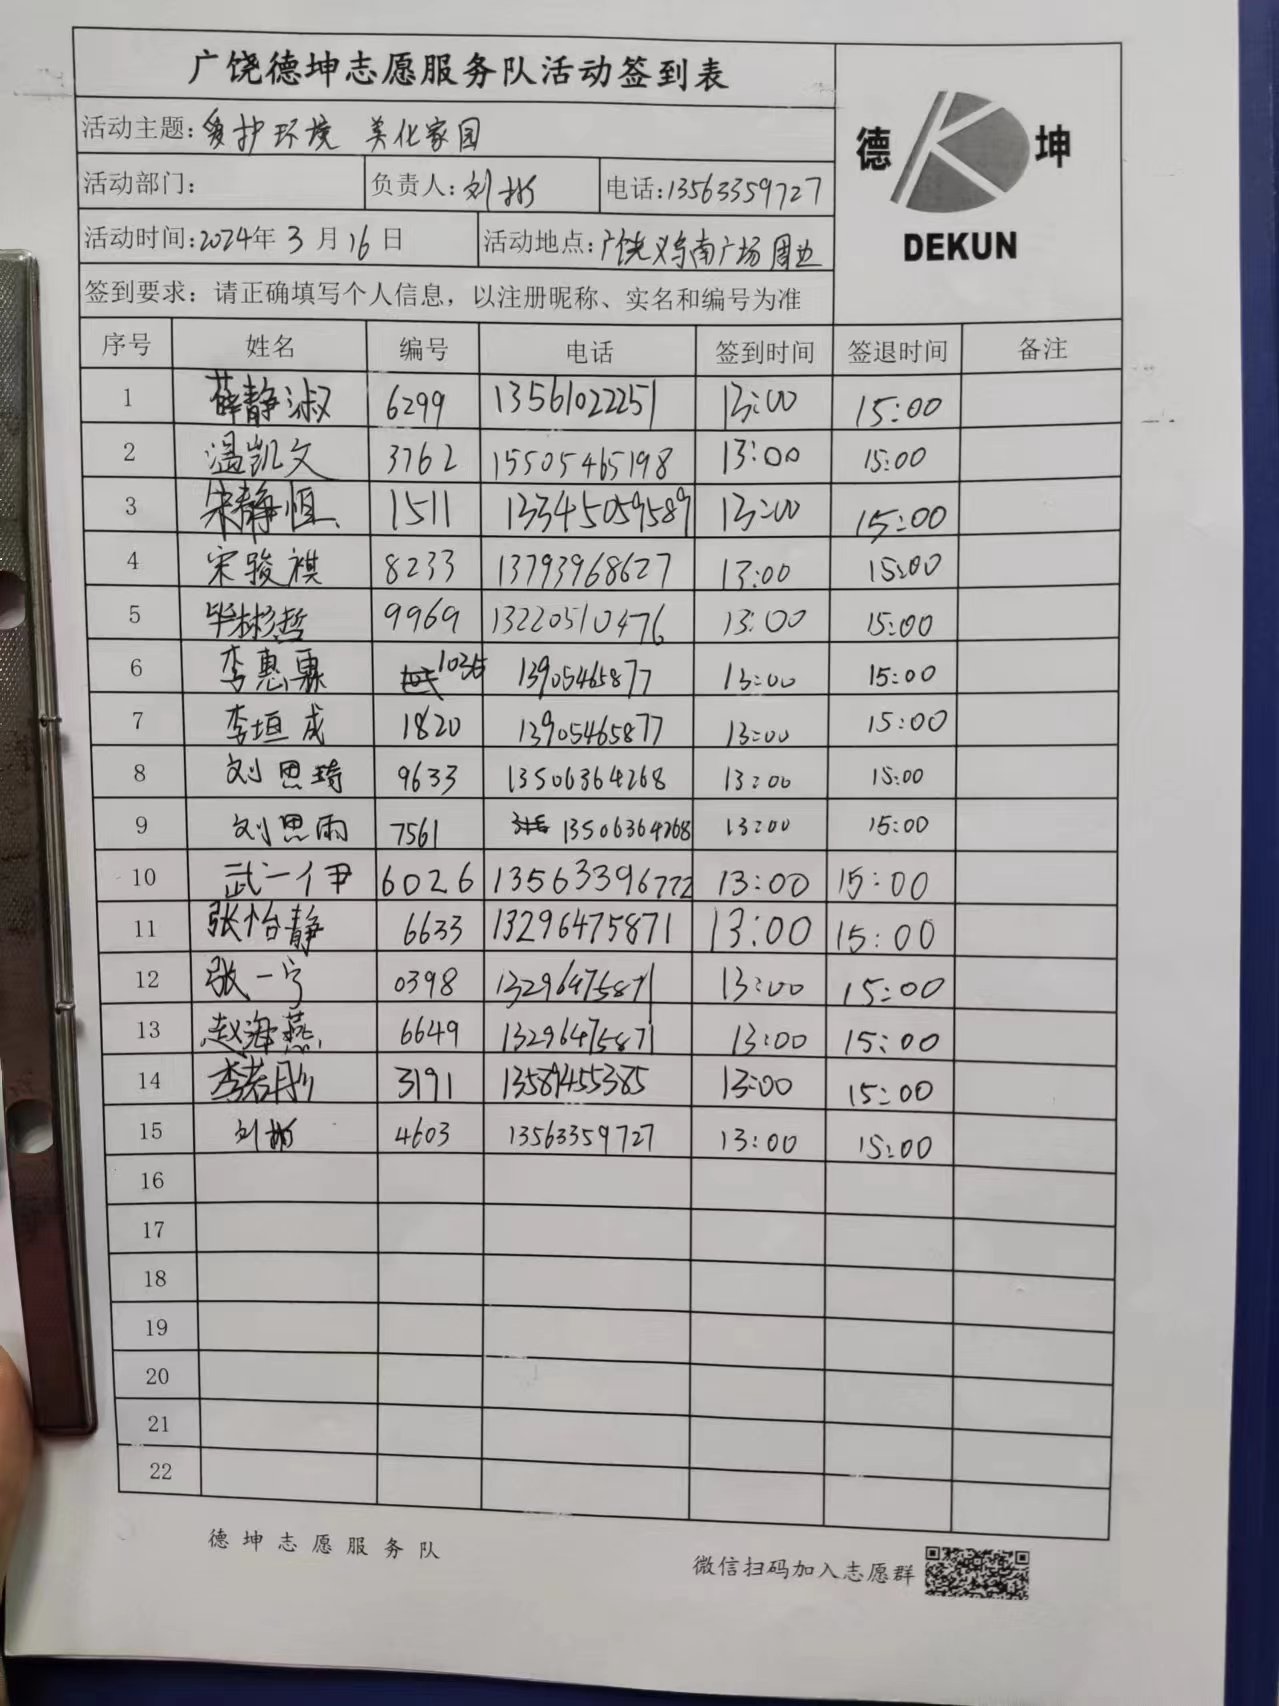 广饶德坤志愿服务队活动签到表
德 坤
DEKUN
活动主题: 爱护环境 美化家园
活动部门: 负责人: 刘彬 电话: 13563359727
活动时间: 2024年 3 月 16 日 活动地点: 广饶义乌南广场周边
签到要求: 请正确填写个人信息，以注册昵称、实名和编号为准
序号 姓名 编号 电话 签到时间 签退时间 备注
1 薛静淑 6299 13561022251 13:00 15:00
2 温凯文 3762 15505465198 13:00 15:00
3 朱静恒 1511 13345059589 13:00 15:00
4 宋骏祺 8233 13793968627 13:00 15:00
5 毕彬哲 9969 13220510476 13:00 15:00
6 李惠霖 13905465877 13:00 15:00
7 李垣成 1820 13905465877 13:00 15:00
8 刘思琦 9633 13506364268 13:00 15:00
9 刘思雨 7561 13506364268 13:00 15:00
10 武一伊 6026 13563396772 13:00 15:00
11 张怡静 6633 13296475871 13:00 15:00
12 张一宁 0398 13296475871 13:00 15:00
13 赵海燕 6649 13296475871 13:00 15:00
14 李若彤 3191 13589455385 13:00 15:00
15 刘彬 4603 13563359727 13:00 15:00
16
17
18
19
20
21
22
德坤志愿服务队
微信扫码加入志愿群